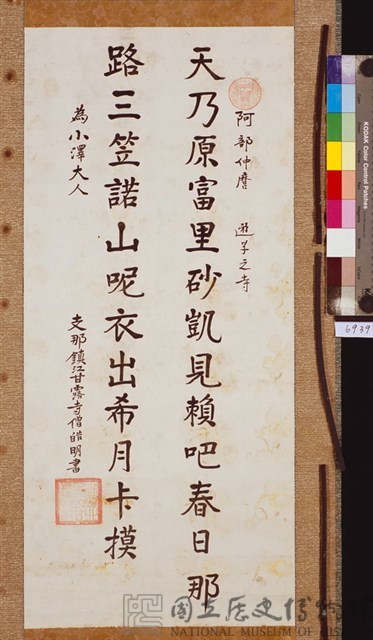 阿部仲麿　遊学之寺
天乃原富里砂凱見賴吧春日那
路三笠諾山呢衣出希月卡摸
為小澤大人
支那鎮江甘露寺僧皓明書
KODAK Color Control Patches
6939
國立歷史博物館
NATIONAL MUSEUM OF HIS